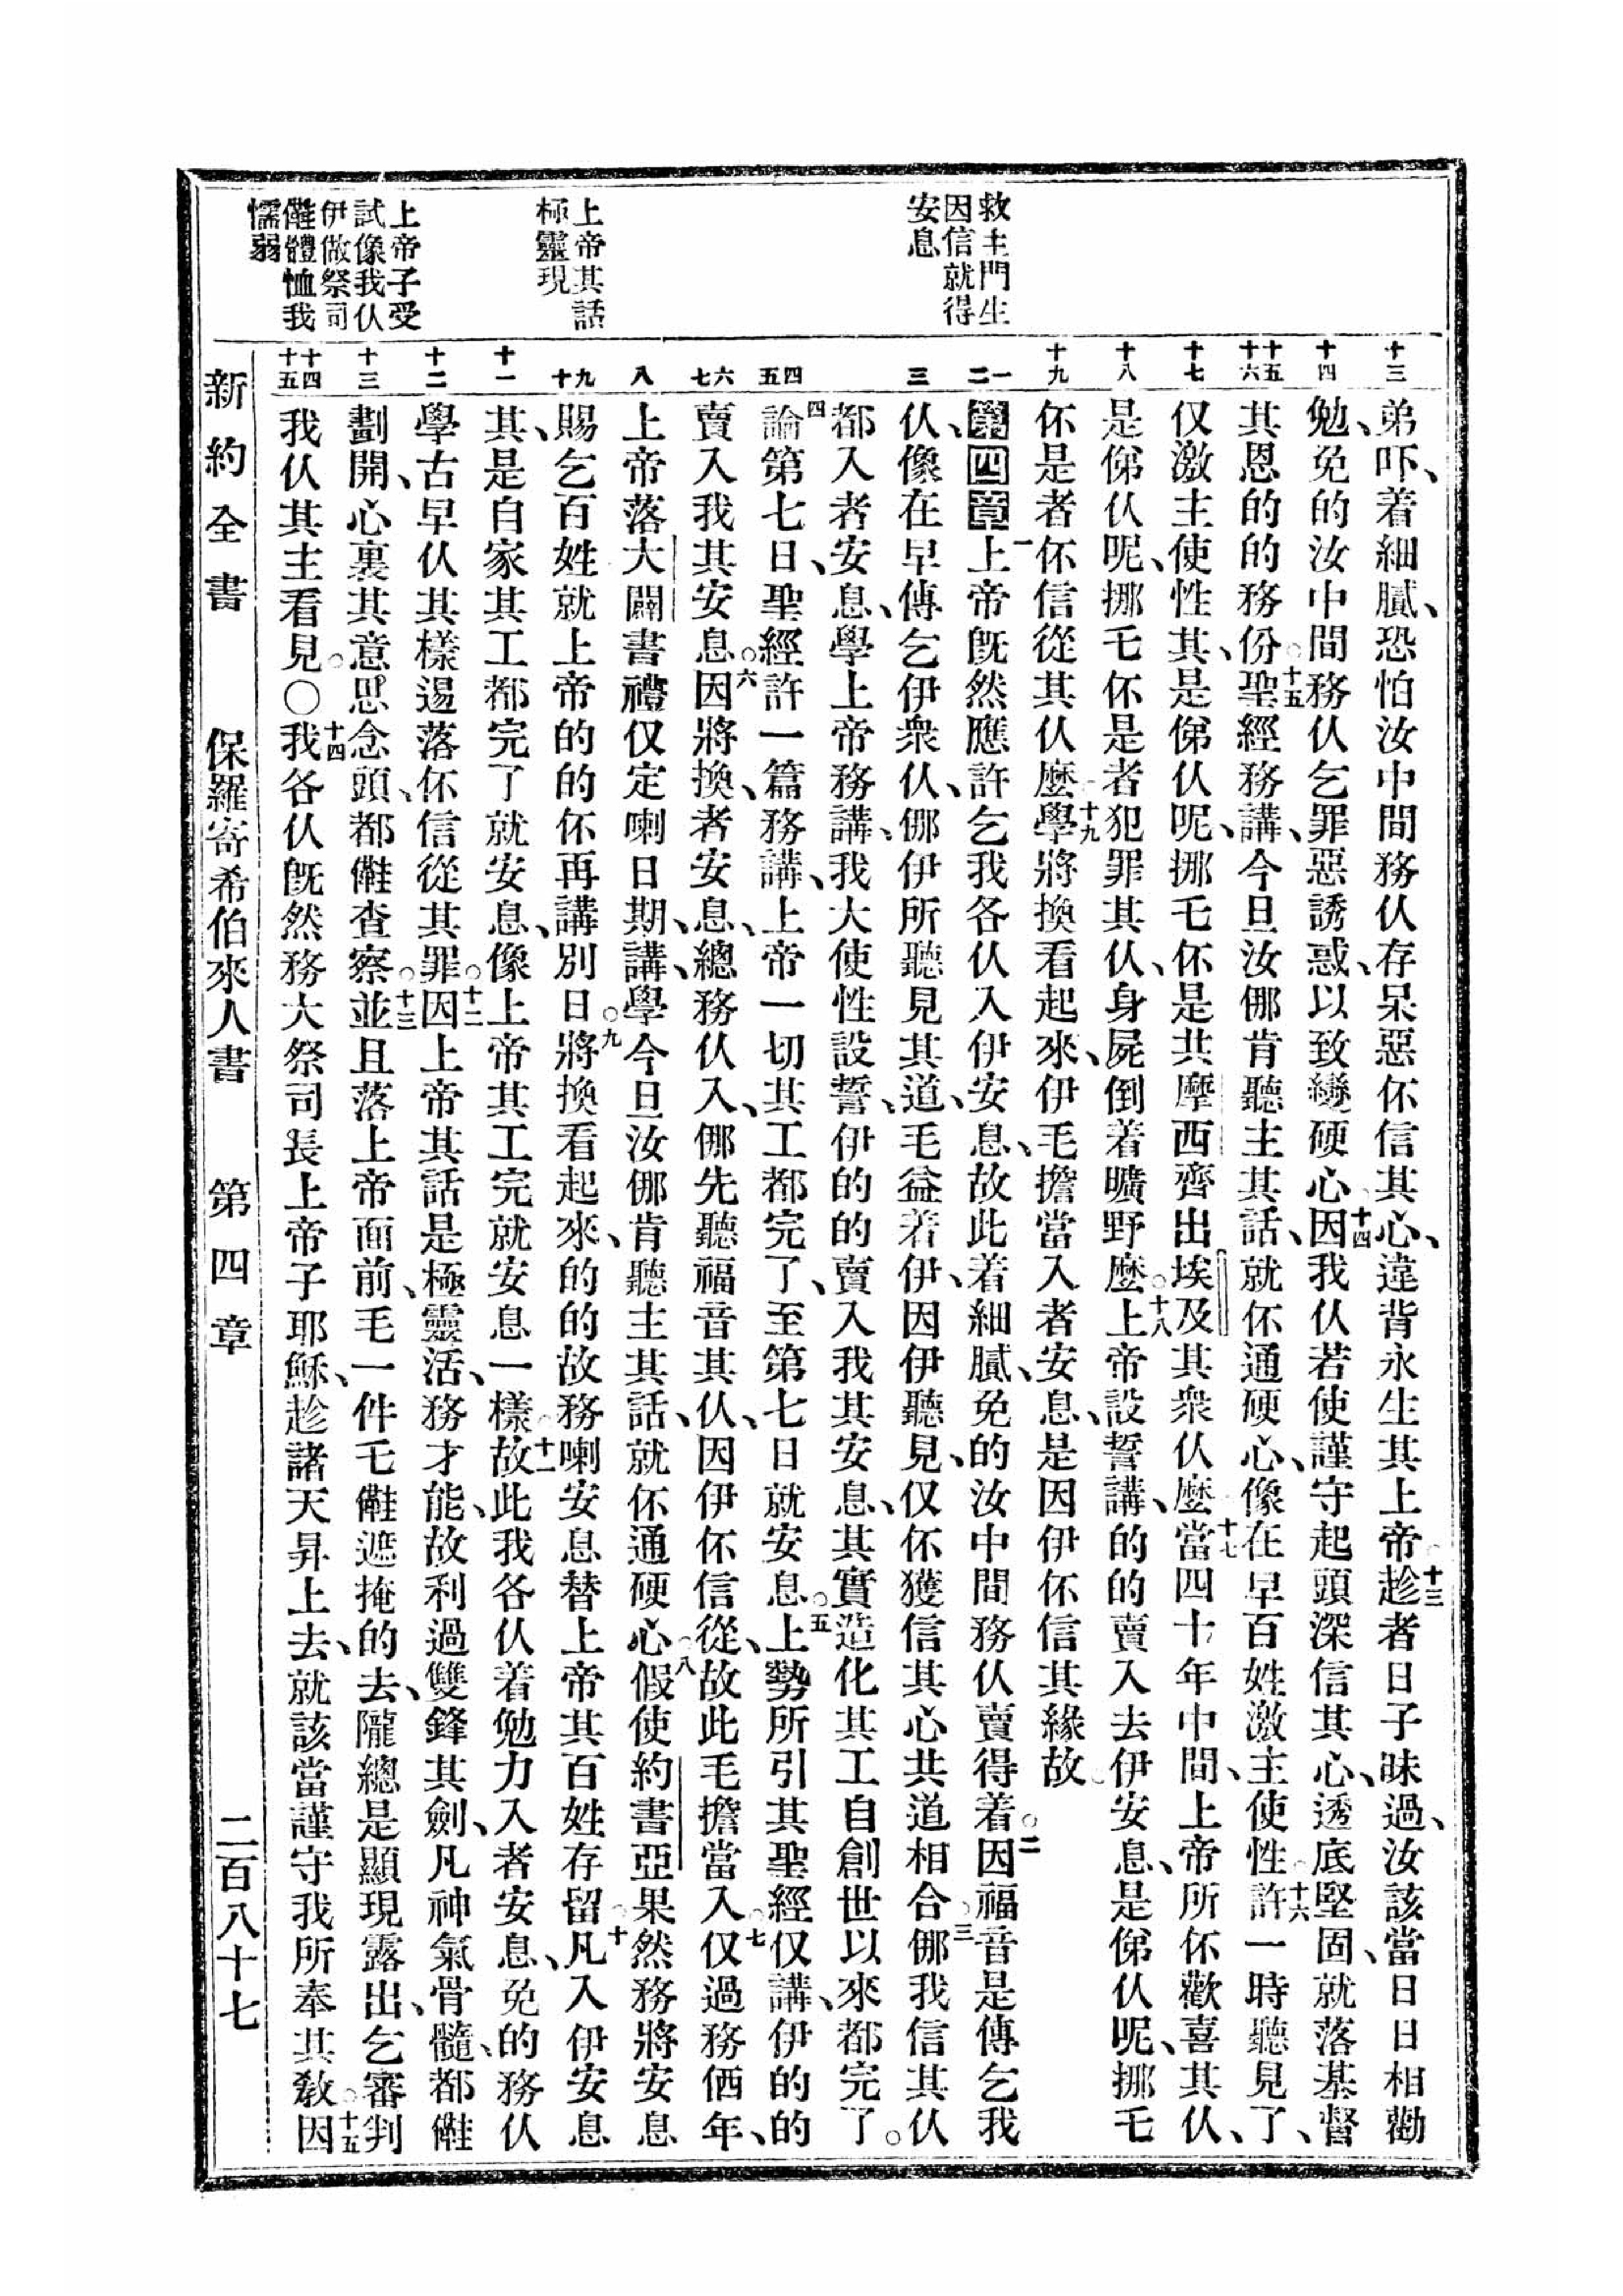 救主門生
因信就得
安息
上帝其話
極靈現
上帝子受
試像我仈
伊做祭司
㑚體恤我
懦弱
十三
十四
十五
十六
十七
十八
十九
一
二
三
四
五
六
七
八
九
十
十一
十二
十三
十四
十五
弟吓、着細膩、恐怕汝中間務仈存呆惡伓信其心、違背永生其上帝○十三趁者日子昧過、汝該當日日相勸
勉、免的汝中間務仈乞罪惡誘惑、以致變硬心○十四因我仈若使謹守起頭深信其心、透底堅固、就落基督
其恩的的務份○十五聖經務講、今旦汝倻肯聽主其話、就伓通硬心、像在早百姓激主使性○十六許一時聽見了、
仅激主使性其、是俤仈呢、挪乇伓是共摩西齊出埃及其衆仈麼○十七當四十年中間、上帝所伓歡喜其仈、
是俤仈呢、挪乇伓是者犯罪其仈、身屍倒着曠野麼○十八上帝設誓講、的的賣入去伊安息、是俤仈呢、挪乇
伓是者伓信從其仈麼○十九學將換看起來、伊乇擔當入者安息、是因伊伓信其緣故○
第四章 一上帝旣然應許乞我各仈入伊安息、故此着細膩、免的汝中間務仈賣得着○二因福音是傳乞我
仈、像在早傳乞伊衆仈、倻伊所聽見其道、乇益着伊、因伊聽見、仅伓獲信其心共道相合○三倻我信其仈
都入者安息、學上帝務講、我大使性設誓、伊的的賣入我其安息、其實造化其工自創世以來都完了○
四論第七日、聖經許一篇務講、上帝一切其工都完了、至第七日就安息○五上勢所引其聖經仅講、伊的的
賣入我其安息○六因將換、者安息、總務仈入、倻先聽福音其仈、因伊伓信從、故此乇擔當入○七仅過務価年、
上帝落大闢書禮仅定喇日期、講、學今旦汝倻肯聽主其話、就伓通硬心○八假使約書亞果然務將安息
賜乞百姓、就上帝的的伓再講別日○九將換看起來、的的故務喇安息替上帝其百姓存留○十凡入伊安息
其、是自家其工都完了就安息、像上帝其工完就安息一樣○十一故此我各仈着勉力入者安息、免的務仈
學古早仈其樣逿落伓信從其罪○十二因上帝其話是極靈活、務才能、故利過雙鋒其劍、凡神氣骨髓、都㑚
劃開、心裏其意思念頭、都㑚查察○十三並且落上帝面前、乇一件乇㑚遮掩的去、隴總是顯現露出、乞審判
我仈其主看見○〇十四我各仈旣然務大祭司長上帝子耶穌、趁諸天昇上去、就該當謹守我所奉其敎○十五因
新約全書 保羅寄希伯來人書 第四章 二百八十七